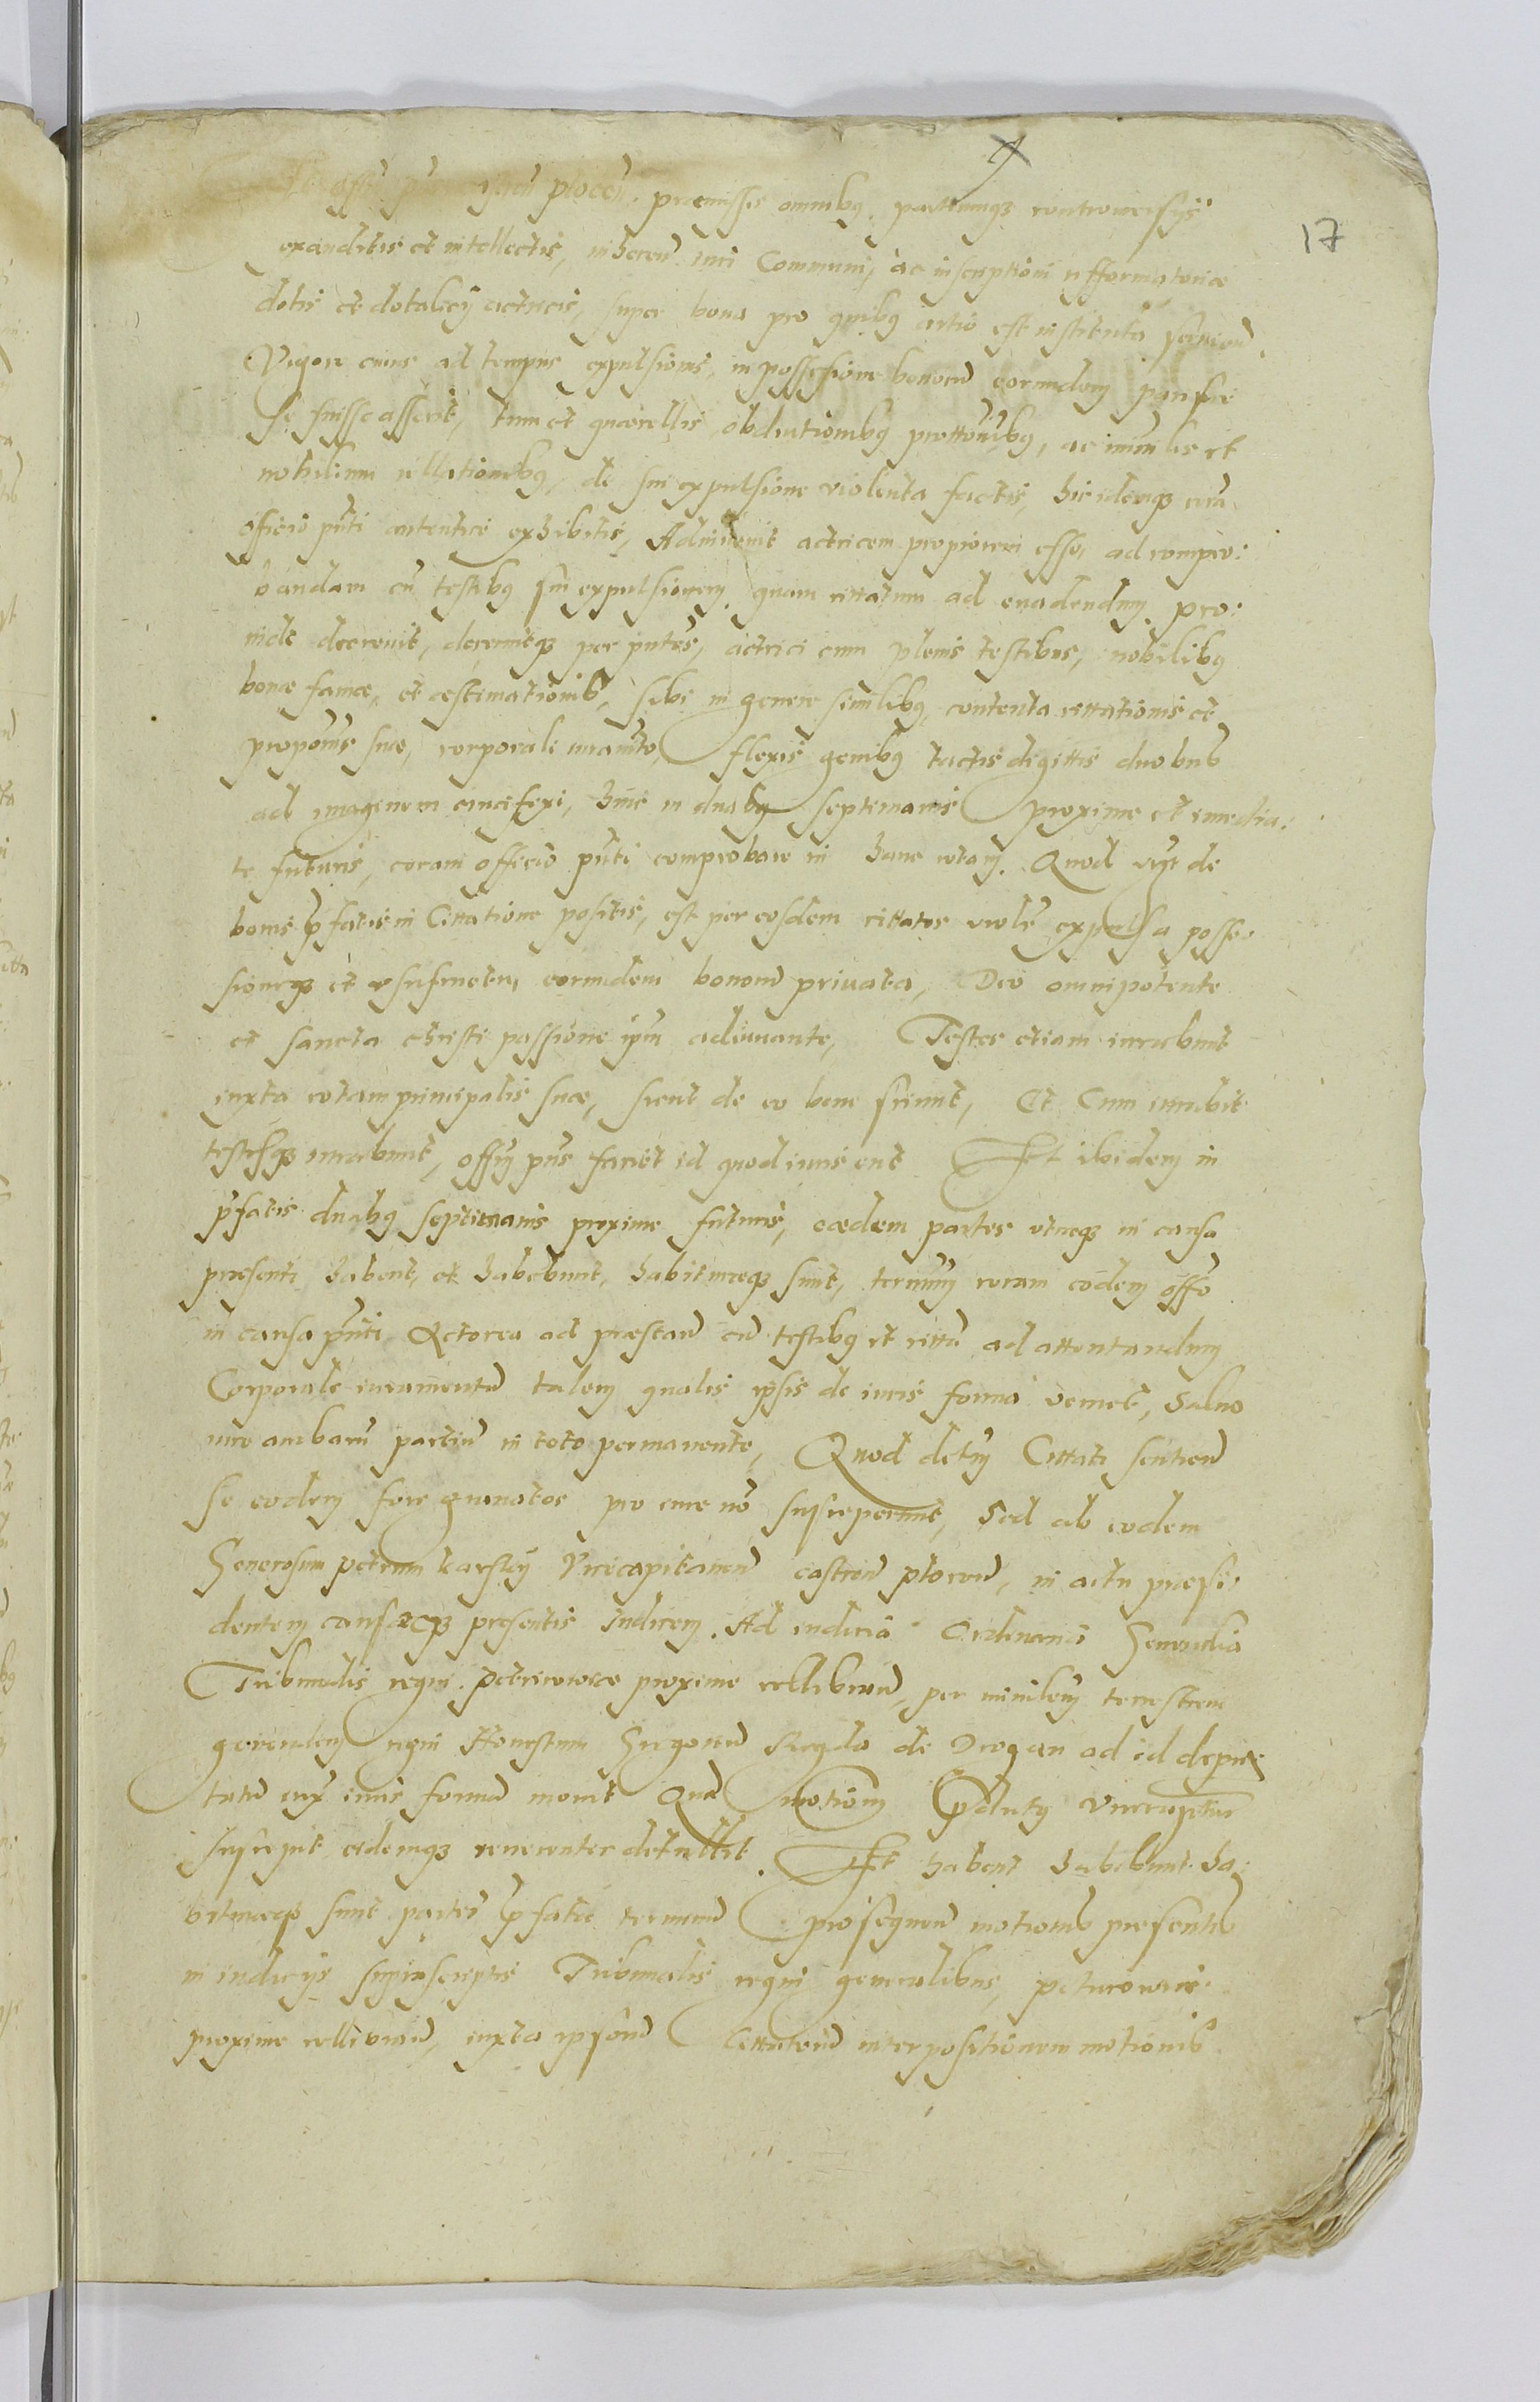 17
premissis omnibus, partiumque controversijs
exauditis et intellectis, inheren iuri Communi, ac inscriptioni refformatoriae
dotis et dotalicij actricis, super bona pro quibus actio est instituta
Vigore cuius ad tempus expulsionis, in possesione bonorum eorundem
se fuisse asserit, tum et quaerellis obductionibus prottonibus, ac
nobilium rellationibus, de sui expulsione violenta factis, hic idemque coram
officio pnti autentice exhibitis, Adinvenit actricem propiorem esse, ad compro:
bandam cum testibus sui expulsionem, quam cittatum ad evadendum, pro:
inde decrevit, decernitque per pntes, actrici cum plenis testibus, nobilibus
bonae famae, et aestimationis, sibi in genere similibus, contenta cittationis et
proponis suae, corporali iuramto, flexis genibus tactis digittis duobus
ad imaginem crucifixi, hinc in duabus septimanis proxime et imedia:
te futuris, coram officio pnti comprobare in hanc rotam. Quod de
bonis pfatis in Cittatione positis, est per eosdem cittatos violr expulsa posse:
sioneque et usufructu, eorundem bonorum privata, Deo omnipotente
et sancta christi passione ipm adiuvante, Testes etiam iurabunt
iuxta rotam principalis suae, sicut de eo bene sciunt, Et Cum iurabit
testesque iurabunt, offm pns faciet id quod iuris erit Et ibidem in
pfatis duabus septimanis proxime futuris, eaedem partes utraeque in causa
praesenti habent, et habebunt, habituraeque sunt, terminum coram eodem offo
in causa pnti Actorea ad praestand cum testibus et citta ad attentandum
Corporale iuramentum talem qualis ipsis de iuris forma veniet, Salvo
iure ambarum partium in toto permanente, Quod detum Cittati sentien
se eodem fore gravatos pro iure non susceperunt, Sed ab eodem
Generosum petrum karsky Vicecapitaneum castren ptocen, in actu praesi:
dentem causaeque presentis Iudicem. Ad iudicia Ordinaria Generalia
Tribunalis regni petricoviae proxime cellebran, per ministerialem terrestrem
generalem regni Honestum Gregorium de Drogan ad id depu
tatum iux iuris formam movit Quam motionem pdictus
suscepit eidemque reverenter detullit. Et habent habebunt ha:
bituraeque sunt partes pfatae terminum prosequen motionis presentis
in iudicijs suprascriptis Tribunalis regni generalibus, petricoviae
proxime cellebran, iuxta ipsorum Cittatorum interpositionem motionis.